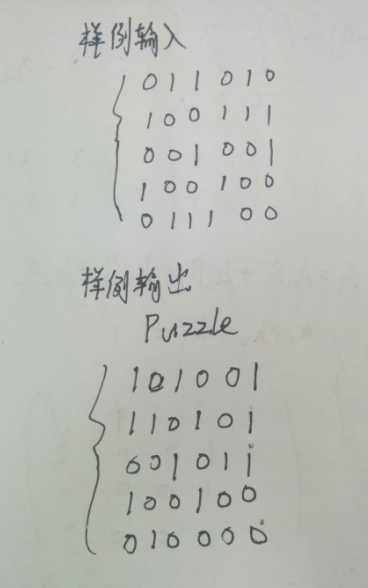 样例输入
0 1 1 0 1 0
1 0 0 1 1 1
0 0 1 0 0 1
1 0 0 1 0 0
0 1 1 1 0 0
样例输出
Puzzle
1 0 1 0 0 1
1 1 0 1 0 1
0 0 1 0 1 1
1 0 0 1 0 0
0 1 0 0 0 0